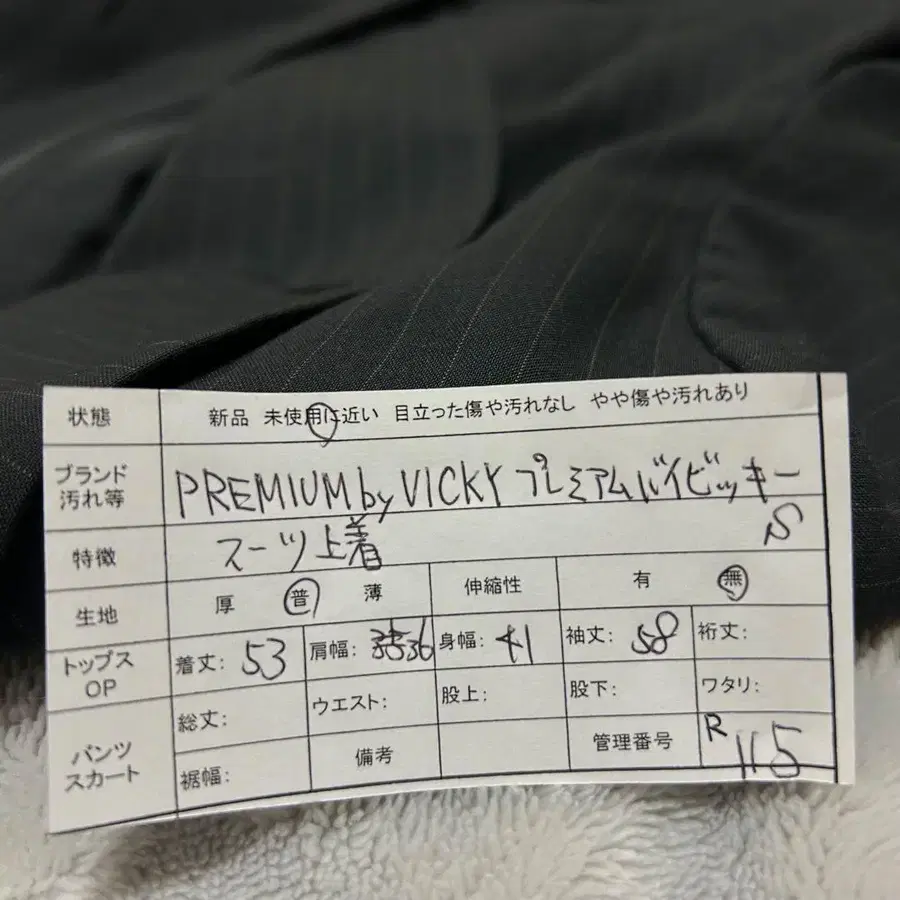 状態 新品 未使用に近い 目立った傷や汚れなし やや傷や汚れあり
ブランド
汚れ等 PREMIUM by VICKY プレミアムバイビッキー
特徴 スーツ上着 S
生地 厚 普 薄 伸縮性 有 無
トップス
OP 着丈: 53 肩幅: 36 身幅: 41 袖丈: 58 裄丈:
パンツ
スカート 総丈: ウエスト: 股上: 股下: ワタリ:
裾幅: 備考 管理番号 R115